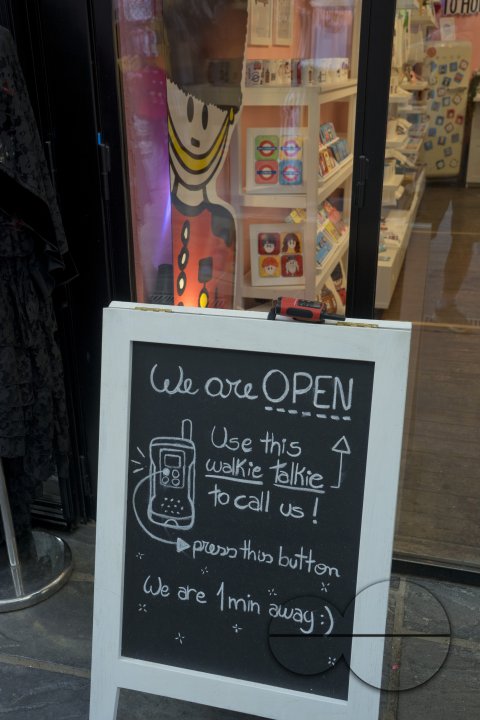 We are OPEN
Use this
walkie talkie
to call us!
press this button
We are 1 min away :)